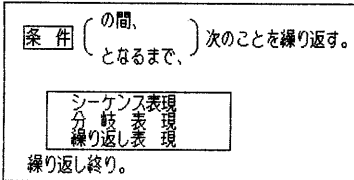 の間、
条件 となるまで、 次のことを繰り返す。
シーケンス表現
分岐表現
繰り返し表現
繰り返し終り。